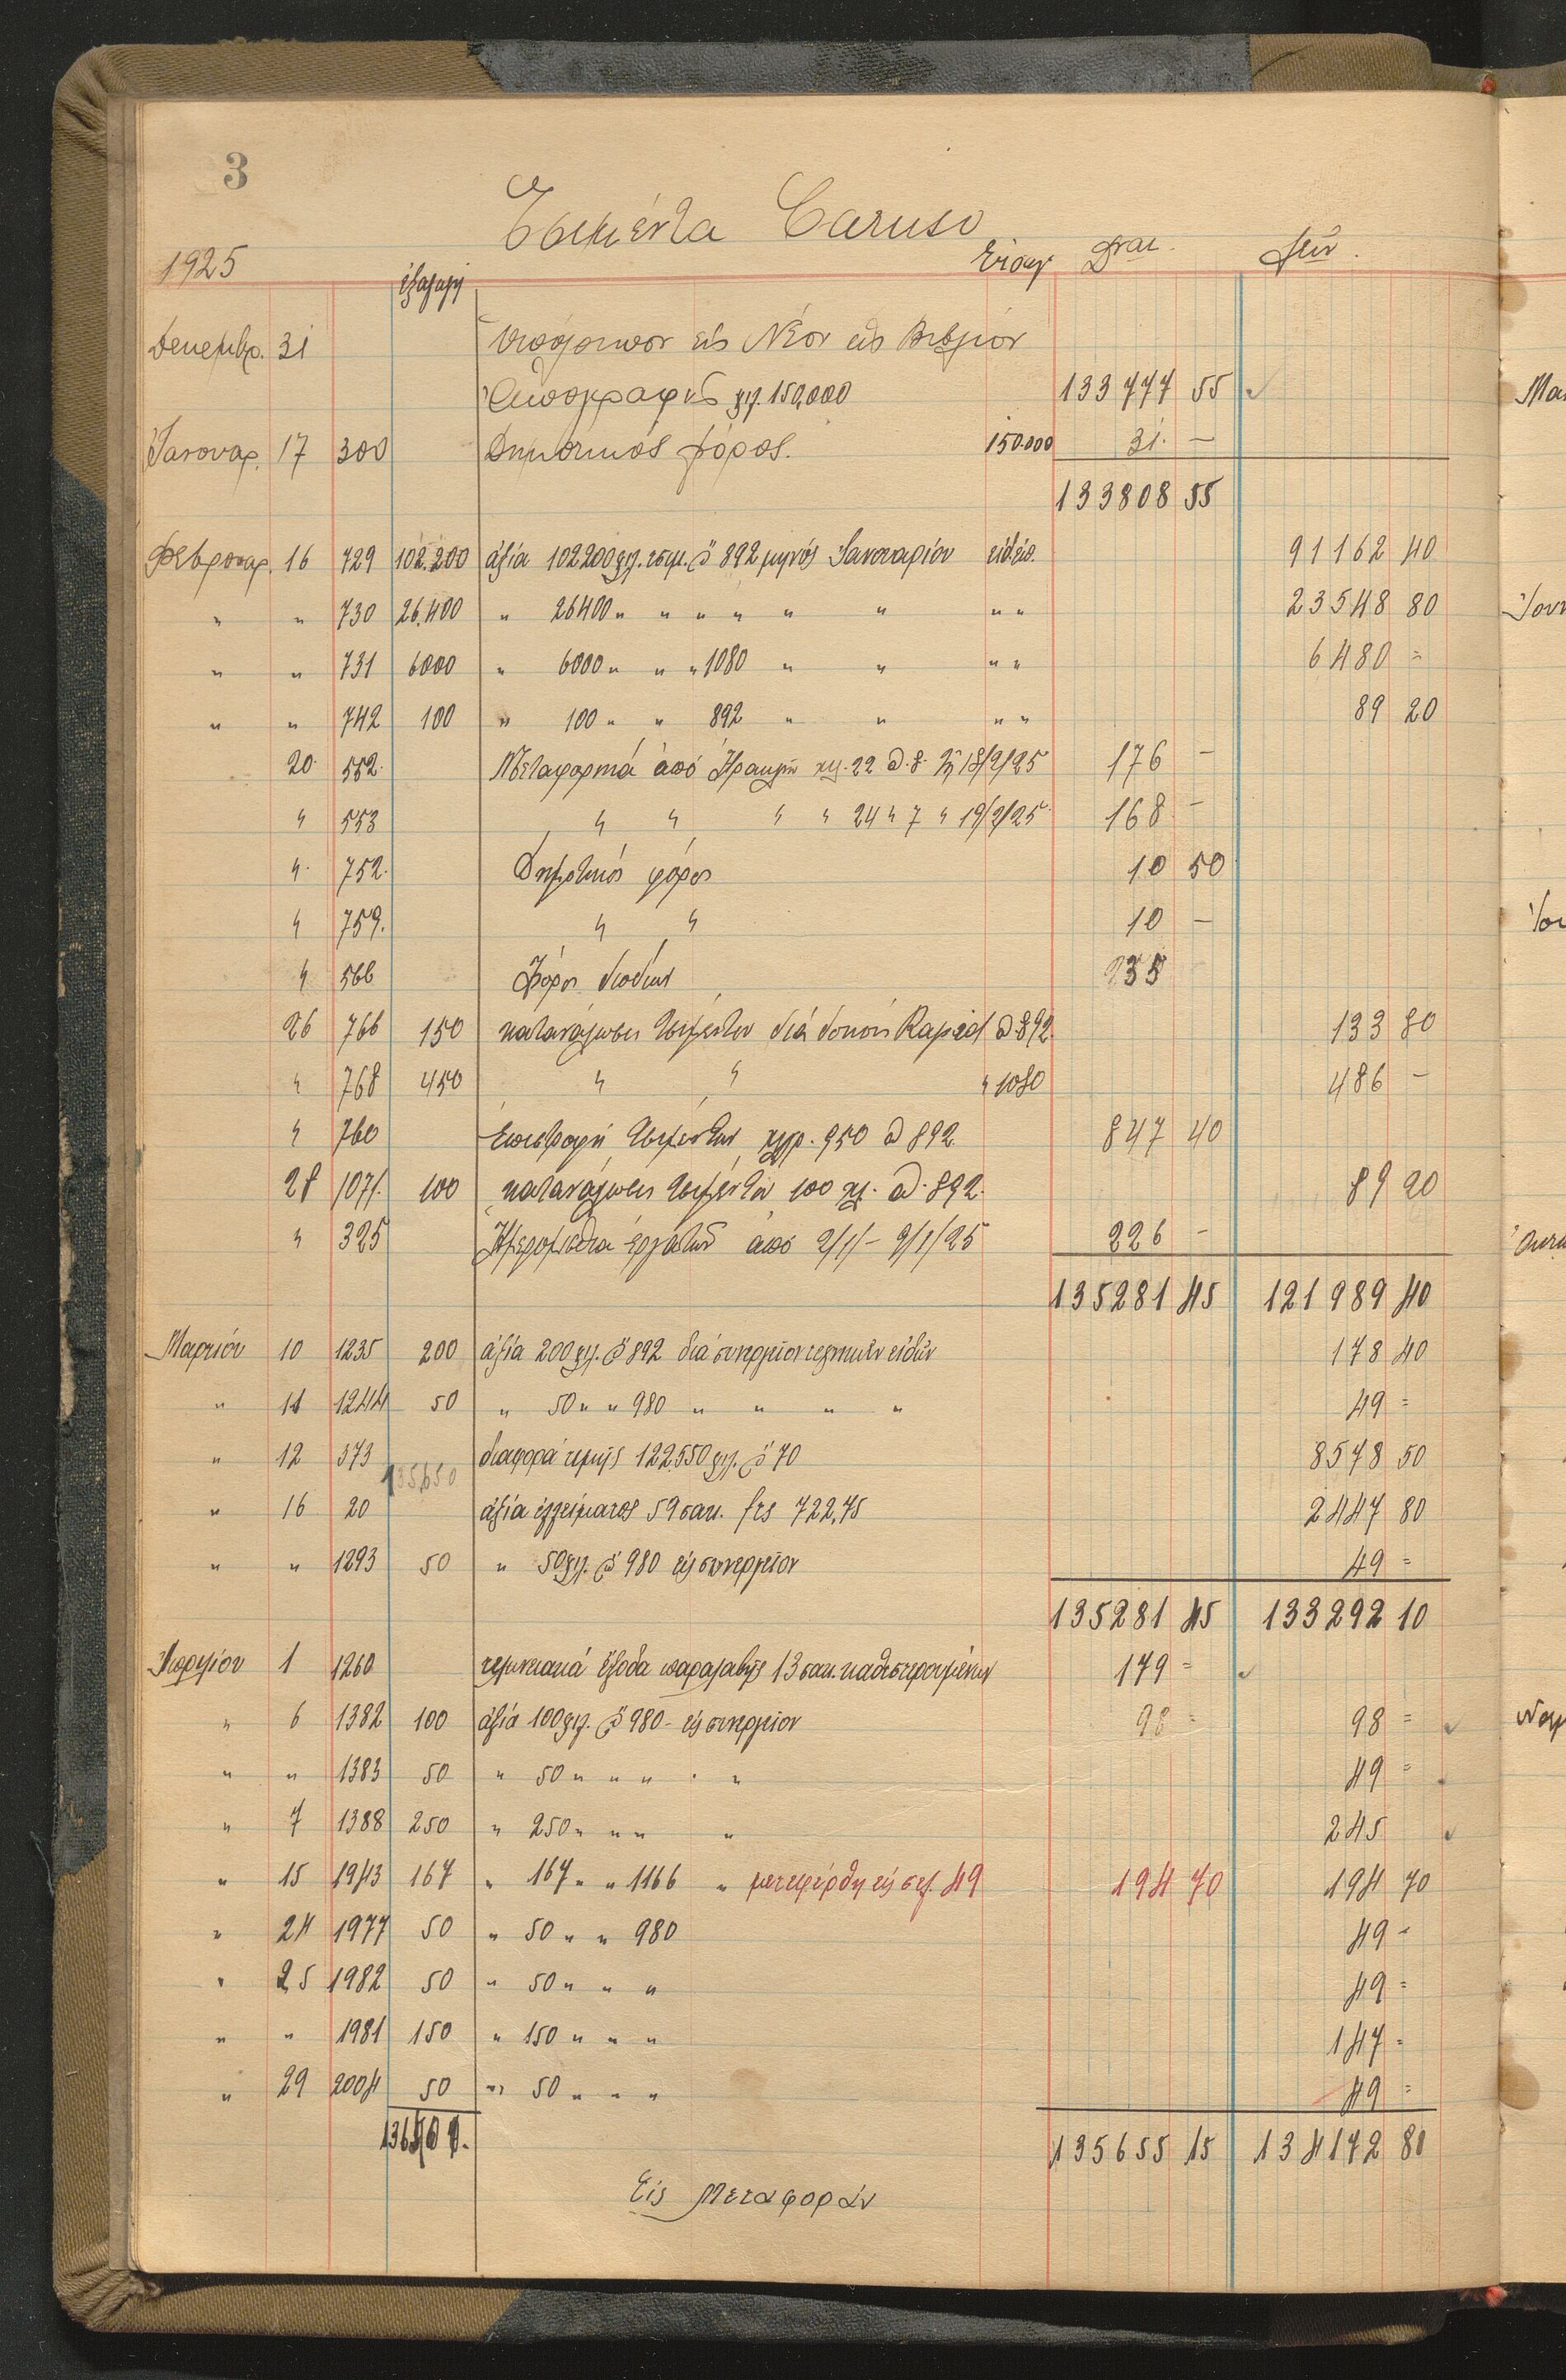 3
Τσιμέντα Caruso
1925 ἐξαγωγή Εἰσαγ Δραχ.
Δεκεμβρ. 31 Ὑπόλοιπον εἰς Νέον εἰς Βιβλίον
Ἀπογραφῆς χιλ. 150,000 133777 55
Ἰανουαρ. 17 300 Δημοτικός φόρος. 150.000 31. —
133808 55
Φεβρουαρ. 16 729 102.200 ἀξία 102200 χιλ. τσιμ. @ 892 μηνός Ἰανουαρίου 91162 40
" " 730 26.400 " 26400 " " " " " " " " 23548 80
" " 731 6000 " 6000 " " " 1080 " " " " 6480 =
" " 742 100 " 100 " " 892 " " " " 89 20
20 552 Μεταφορικά ἀπό Ἡρακλ. 22 @ 8. τῇ 18/2/25 176 —
" 553 " " " " 24 " 7 " 19/2/25 168 —
" 752. Δημοτικός φόρος 10 50
" 759. " " 10 —
" 566 Φόρος διοδίων 235
26 766 150 κατανάλωσις τσιμέντων διά δοκούς Rapid @ 892 133 80
" 768 450 " " " 1080 486 —
" 760 Ἐπιστροφή τσιμέντων χλγρ. 950 @ 892 847 40
28 1071. 100 κατανάλωσις τσιμέντων 100 χλ. @ 892. 89 20
" 325 Ἡμερομίσθια ἐργατῶν ἀπό 2/1/ — 9/1/25 226 —
135281 45 121989 40
Μαρτίου 10 1235 200 ἀξία 200 χιλ. @ 892 διά συνεργεῖον τεχνητῶν εἰδῶν 178 40
" 11 1244 50 " 50 " " 980 " " " " 49 =
" 12 373 διαφορά τιμῆς 122.550 χιλ. @ 70 8578 50
135650
" 16 20 ἀξία ἐλλείματος 59 σακ. frs 722,75 2447 80
" " 1293 50 " 50 χιλ. @ 980 εἰς συνεργεῖον 49 =
135281 45 133292 10
Ἀπριλίου 1 1260 τελωνειακά ἔξοδα παραλαβῆς 13 σακ. καθυστερουμένων 179 =
" 6 1382 100 ἀξία 100 χιλ. @ 980 – εἰς συνεργεῖον 98 = 98 =
" " 1383 50 " 50 " " " " 49 =
" 7 1388 250 " 250 " " " " 245
" 15 1943 167 " 167 " " 1166 " μετεφέρθη εἰς σελ. 49 194 70 194 70
" 24 1977 50 " 50 " " 980 49 -
" 25 1982 50 " 50 " " " 49 =
" " 1981 150 " 150 " " " 147 =
" 29 2004 50 " 50 " " " 49 =
135655 15 134172 80
Εἰς Μεταφοράν